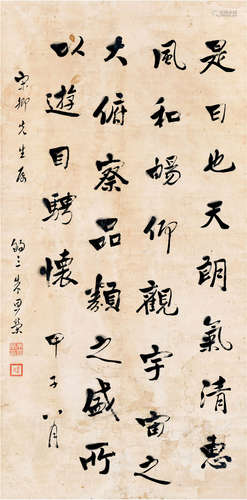 是日也天朗氣清惠
風和暢仰觀宇宙之
大俯察品類之盛所
以遊目騁懷 甲子八月
卿先生屬